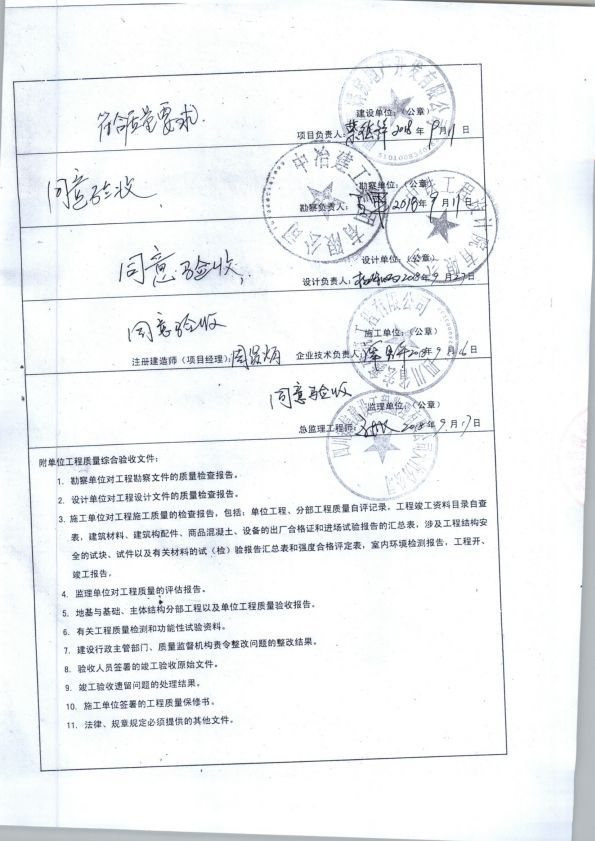 符合质量要求.
建设单位：（公章）
项目负责人： 2018年9月11日
同意验收.
勘察单位：（公章）
勘察负责人： 2018年9月11日
同意验收.
设计单位：（公章）
设计负责人： 2018年9月27日
同意验收
施工单位：（公章）
注册建造师（项目经理）： 企业技术负责人： 2018年9月16日
同意验收
监理单位：（公章）
总监理工程师： 2018年9月17日
附单位工程质量综合验收文件：
1. 勘察单位对工程勘察文件的质量检查报告。
2. 设计单位对工程设计文件的质量检查报告。
3. 施工单位对工程施工质量的检查报告，包括：单位工程、分部工程质量自评记录，工程竣工资料目录自查
表，建筑材料、建筑构配件、商品混凝土、设备的出厂合格证和进场试验报告的汇总表，涉及工程结构安
全的试块、试件以及有关材料的试（检）验报告汇总表和强度合格评定表，室内环境检测报告，工程开、
竣工报告。
4. 监理单位对工程质量的评估报告。
5. 地基与基础、主体结构分部工程以及单位工程质量验收报告。
6. 有关工程质量检测和功能性试验资料。
7. 建设行政主管部门、质量监督机构责令整改问题的整改结果。
8. 验收人员签署的竣工验收原始文件。
9. 竣工验收遗留问题的处理结果。
10. 施工单位签署的工程质量保修书。
11. 法律、规章规定必须提供的其他文件。